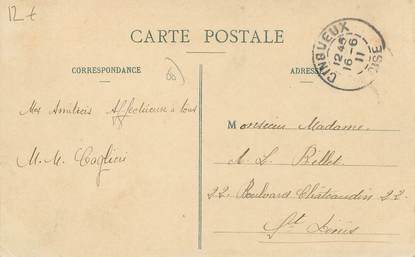 12 €
CARTE POSTALE
CORRESPONDANCE
ADRESSE
CINQUEUX
12 45
16 - 6
11
OISE
60
Mes Amitiés Affectueuses à tous
M. M. Caglieri
Monsieur Madame
A. L. Billet
22 Boulevard Châteaudin 22
St Denis